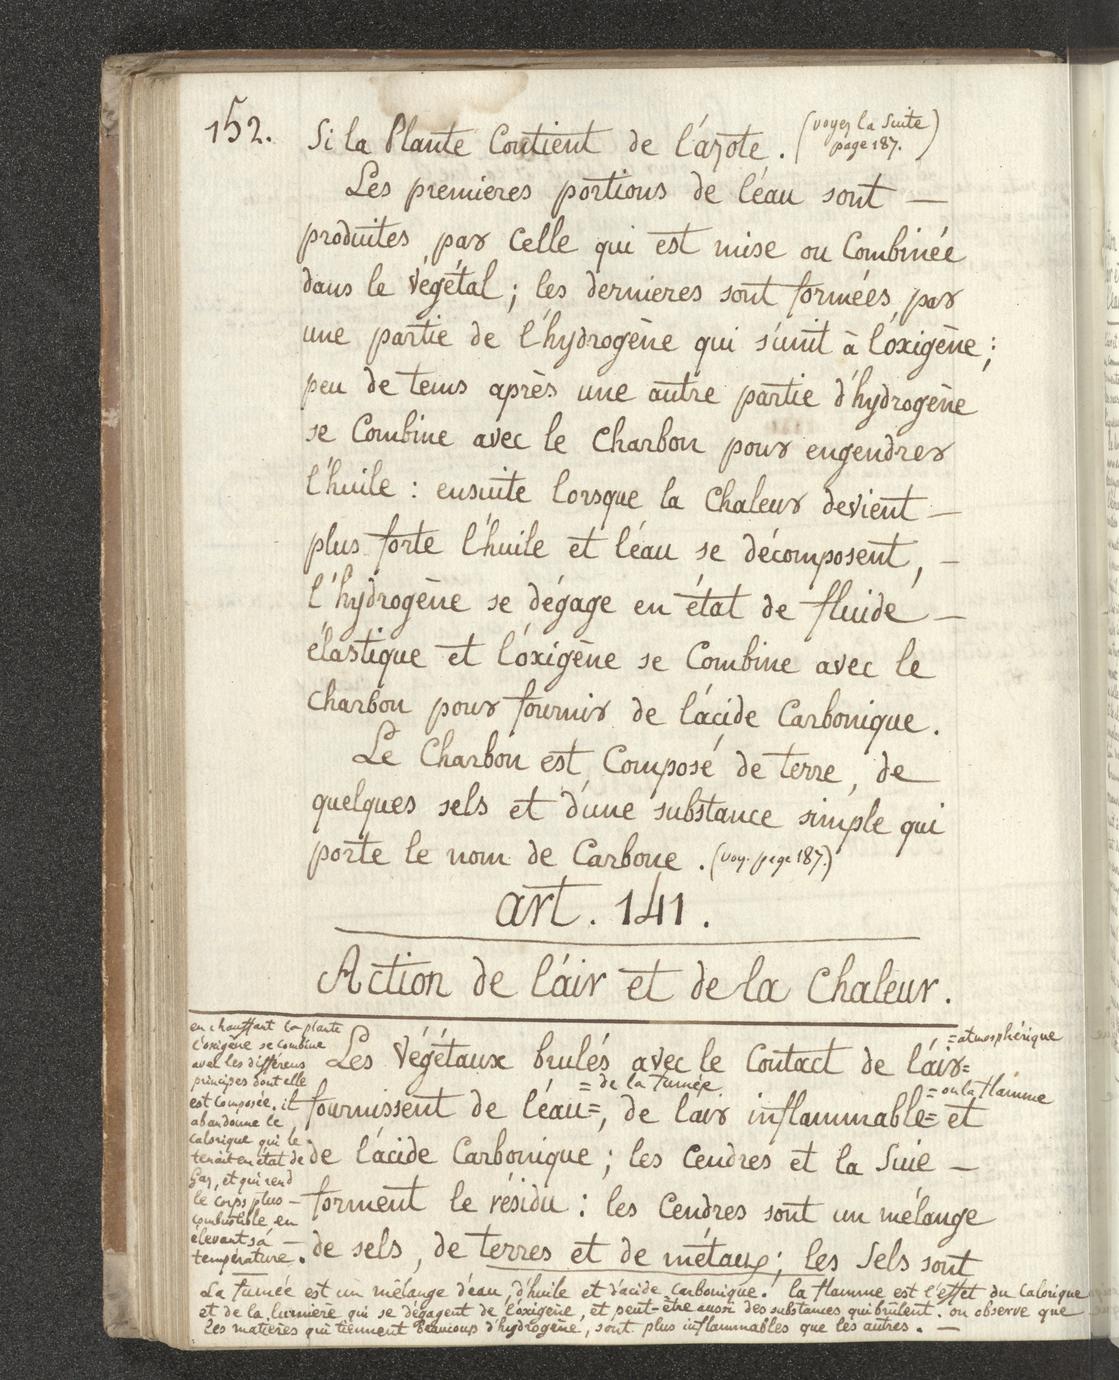 152.
Si la Plante Contient de l'azote. (voyez la Suite
page 187.)
Les premieres portions de l'éau sont —
produites par celle qui est mise ou Combinée
dans le végétal ; les dernieres sont formées par
une partie de l'hydrogène qui s'unit à l'oxigène ;
peu de tems après une autre partie d'hydrogène
se Combine avec le Charbon pour engendrer
l'huile : ensuite lorsque la Chaleur devient —
plus forte l'huile et l'éau se décomposent, —
l'hydrogène se dégage en état de fluide —
élastique et l'oxigène se Combine avec le
Charbon pour fournir de l'acide Carbonique.
Le Charbon est Composé de terre, de
quelques sels et d'une substance simple qui
porte le nom de Carbone. (voy. page 187.)
art. 141.
Action de l'air et de la Chaleur.
en chauffant la plante
l'oxigène se combine
avec les différens
principes dont elle
est composée. il
abandonne le
calorique qui le
tenait en état de
Gaz, et qui rend
le corps plus —
combustible en
élevant sa —
température.
Les Végétaux brulés avec le Contact de l'air= =atmosphérique
fournissent de l'éau=, =de la fumée de l'air inflammable= =ou la flamme et
de l'acide Carbonique ; les Cendres et la Suie —
forment le résidu : les Cendres sont un mélange
de sels, de terres et de métaux ; les Sels sont
La fumée est un mêlange d'eau, d'huile et d'acide Carbonique. la flamme est l'effet du Calorique
et de la lumière qui se dégagent de l'oxigène, et peut-être aussi des substances qui brûlent. on observe que
les matieres qui tiennent beaucoup d'hydrogène, sont plus inflammables que les autres. —